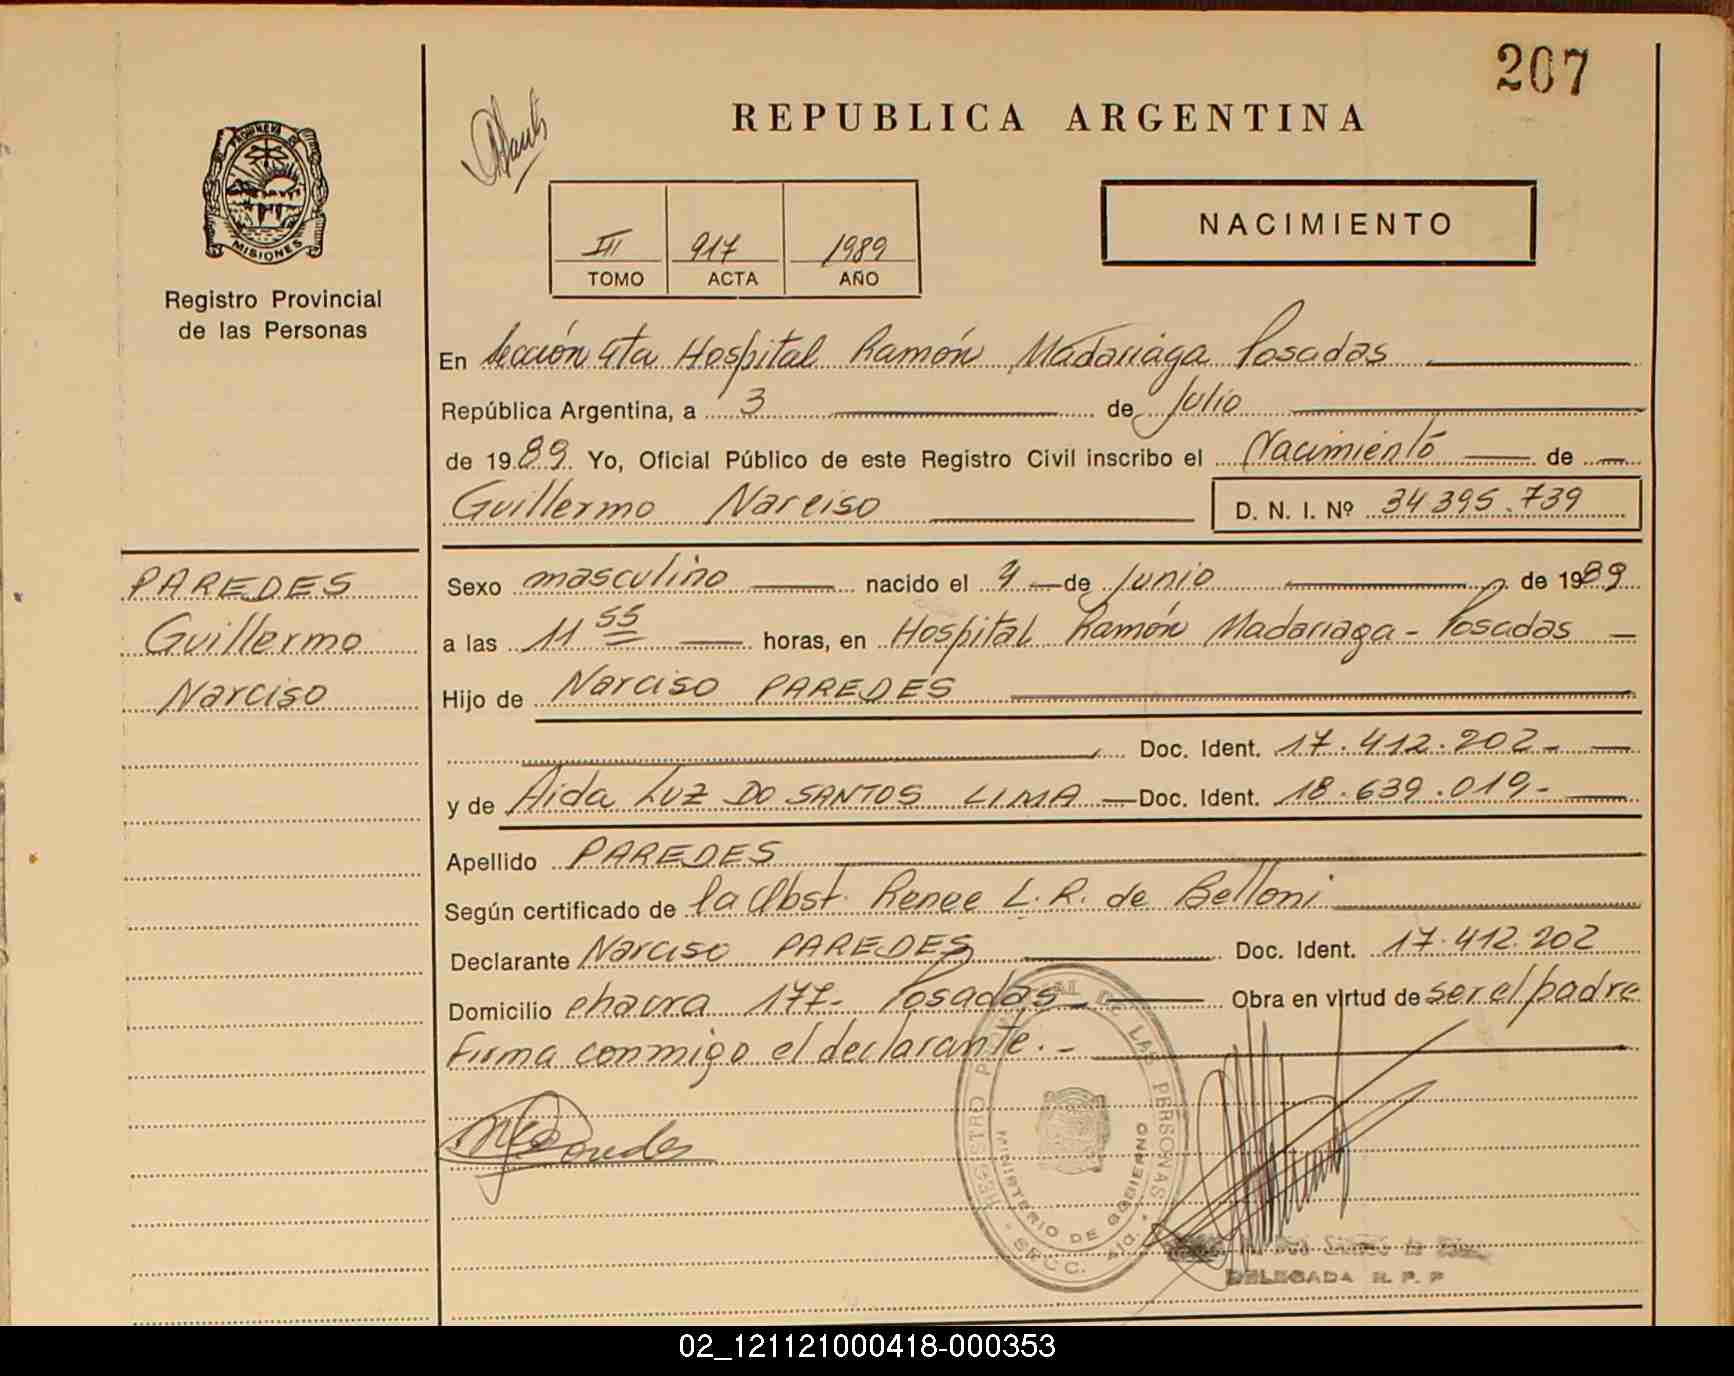 207
REPUBLICA ARGENTINA
PROVINCIA DE
MISIONES
Registro Provincial
de las Personas
III 917 1989
TOMO ACTA AÑO
NACIMIENTO
En Sección 4ta Hospital Ramón Madariaga Posadas
República Argentina, a 3 de Julio
de 1989 Yo, Oficial Público de este Registro Civil inscribo el Nacimiento de
Guillermo Narciso D. N. I. Nº 34395.739
PAREDES
Guillermo
Narciso
Sexo masculino nacido el 9 de Junio de 1989
a las 11 55 horas, en Hospital Ramón Madariaga - Posadas
Hijo de Narciso PAREDES
Doc. Ident. 17.412.202-
y de Aida Luz DO SANTOS LIMA Doc. Ident. 18.639.019-
Apellido PAREDES
Según certificado de la Obst. Renee L. R. de Belloni
Declarante Narciso PAREDES Doc. Ident. 17.412.202
Domicilio chacra 177- Posadas- Obra en virtud de ser el padre
Firma conmigo el declarante.-
REGISTRO PROVINCIAL DE LAS PERSONAS
MINISTERIO DE GOBIERNO
SECC. 4ta
DELEGADA R. P. P
02_121121000418-000353